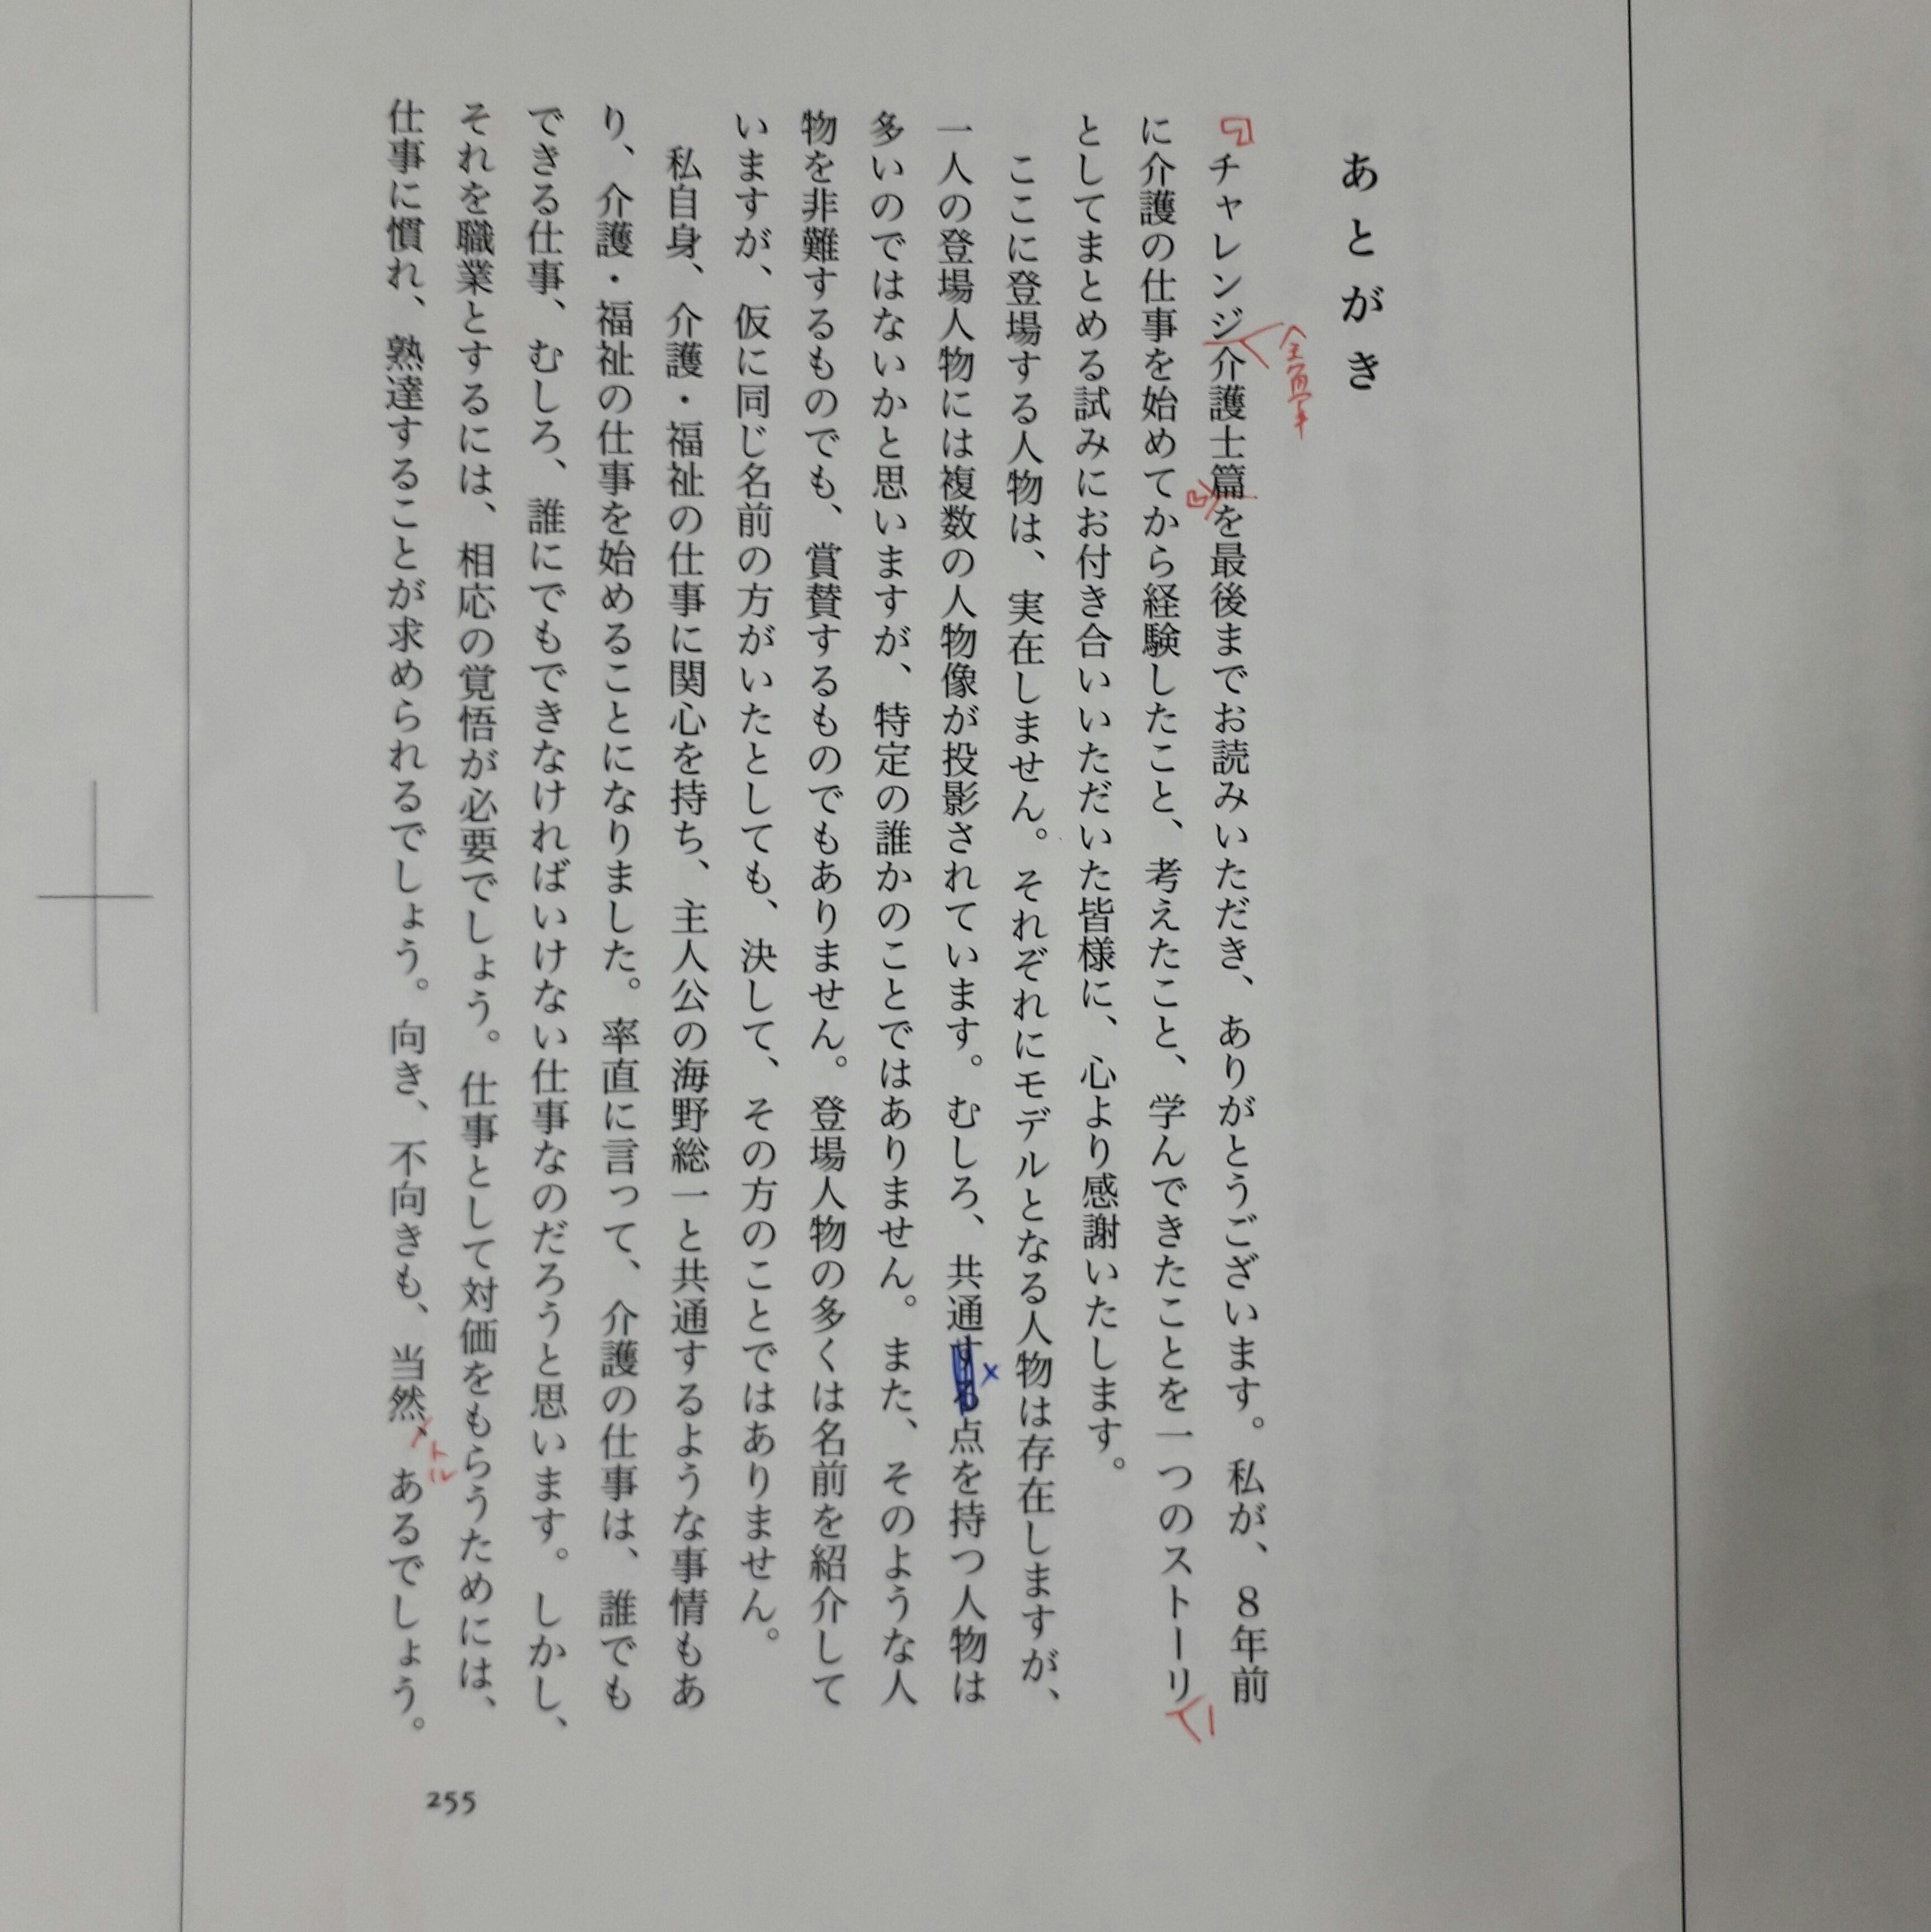 あとがき
チャレンジ介護士篇を最後までお読みいただき、ありがとうございます。私が、8年前
に介護の仕事を始めてから経験したこと、考えたこと、学んできたことを一つのストーリ
としてまとめる試みにお付き合いいただいた皆様に、心より感謝いたします。
ここに登場する人物は、実在しません。それぞれにモデルとなる人物は存在しますが、
一人の登場人物には複数の人物像が投影されています。むしろ、共通する点を持つ人物は
多いのではないかと思いますが、特定の誰かのことではありません。また、そのような人
物を非難するものでも、賞賛するものでもありません。登場人物の多くは名前を紹介して
いますが、仮に同じ名前の方がいたとしても、決して、その方のことではありません。
私自身、介護・福祉の仕事に関心を持ち、主人公の海野総一と共通するような事情もあ
り、介護・福祉の仕事を始めることになりました。率直に言って、介護の仕事は、誰でも
できる仕事、むしろ、誰にでもできなければいけない仕事なのだろうと思います。しかし、
それを職業とするには、相応の覚悟が必要でしょう。仕事として対価をもらうためには、
仕事に慣れ、熟達することが求められるでしょう。向き、不向きも、当然、あるでしょう。
全角字
トル
255